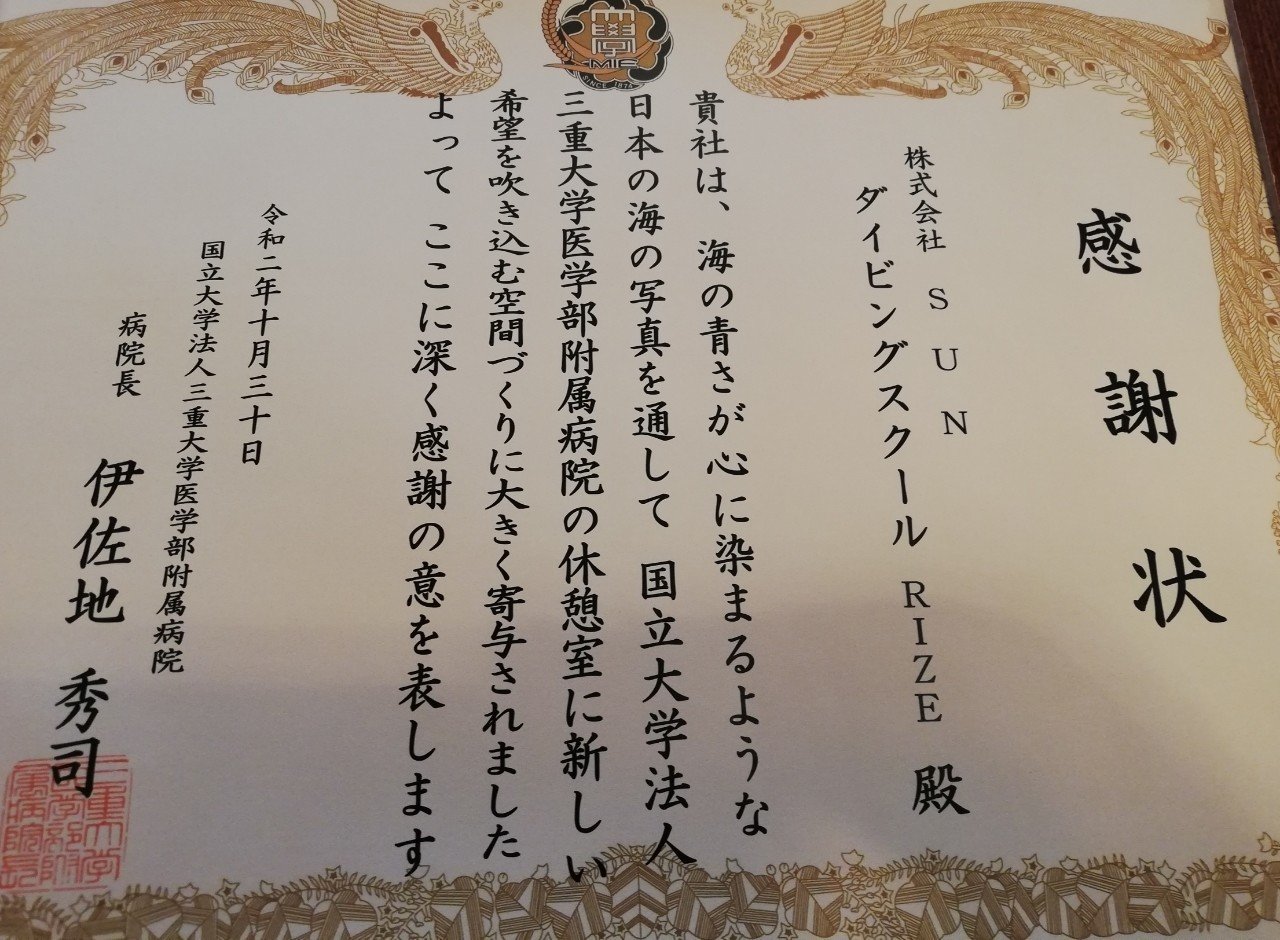 感謝状
株式会社 SUN
ダイビングスクール RIZE 殿
貴社は、海の青さが心に染まるような
日本の海の写真を通して 国立大学法人
三重大学医学部附属病院の休憩室に新しい
希望を吹き込む空間づくりに大きく寄与されました
よって ここに深く感謝の意を表します
令和二年十月三十日
国立大学法人三重大学医学部附属病院
病院長 伊佐地 秀司
MIE
SINCE 1874